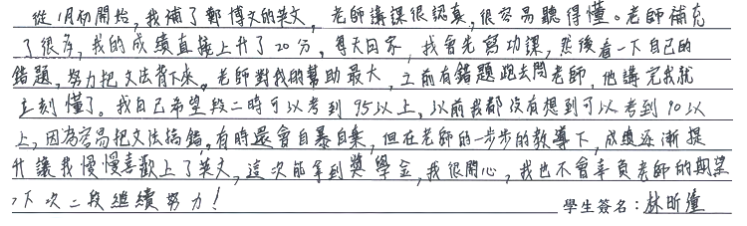 從1月初開始,我補了鄭博文的英文,老師講課很認真,很容易聽得懂。老師補充
了很多,我的成績直接上升了20分,每天回家,我會先寫功課,然後看一下自己的
錯題,努力把文法背下來。老師對我的幫助最大,之前有錯題跑去問老師,他講完我就
立刻懂了。我自己希望段二時可以考到95以上,以前我都沒有想到可以考到90以
上,因為容易把文法搞錯,有時還會自暴自棄,但在老師的一步步的教導下,成績逐漸提
升讓我慢慢喜歡上了英文,這次能拿到獎學金,我很開心,我也不會辜負老師的期望
,下次二段繼續努力!
學生簽名:林昕潼